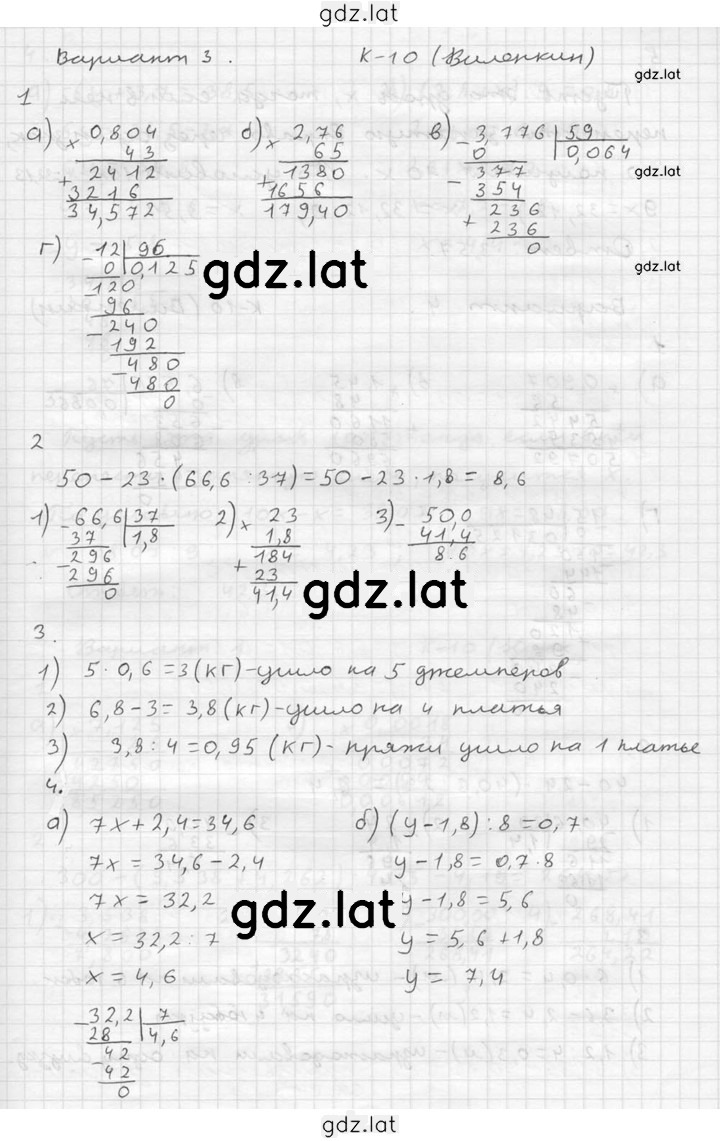 gdz.lat
Вариант 3. К-10 (Виленкин)
gdz.lat
1
а) × 0,804 б) × 2,76 в) - 3,776 | 59
43 65 0 0,064
2412 1380 - 377
+ 3216 + 1656 354
34,572 179,40 + 236
236
0
gdz.lat
г) - 12 | 96
0 0,125
- 120
96
- 240
192
- 480
480
0
gdz.lat
gdz.lat
2
50 - 23 · (66,6 : 37) = 50 - 23 · 1,8 = 8,6
1) - 66,6 | 37 2) × 23 3) - 50,0
37 1,8 1,8 41,4
- 296 184 8,6
296 + 23
0 41,4
gdz.lat
3.
1) 5 · 0,6 = 3 (кг) - ушло на 5 джемперов
2) 6,8 - 3 = 3,8 (кг) - ушло на 4 платья
3) 3,8 : 4 = 0,95 (кг) - пряжи ушло на 1 платье
4.
а) 7x + 2,4 = 34,6 б) (y - 1,8) : 8 = 0,7
7x = 34,6 - 2,4 y - 1,8 = 0,7 · 8
7x = 32,2 y - 1,8 = 5,6
gdz.lat
x = 32,2 : 7 y = 5,6 + 1,8
x = 4,6 y = 7,4
- 32,2 | 7
28 4,6
- 42
42
0
gdz.lat